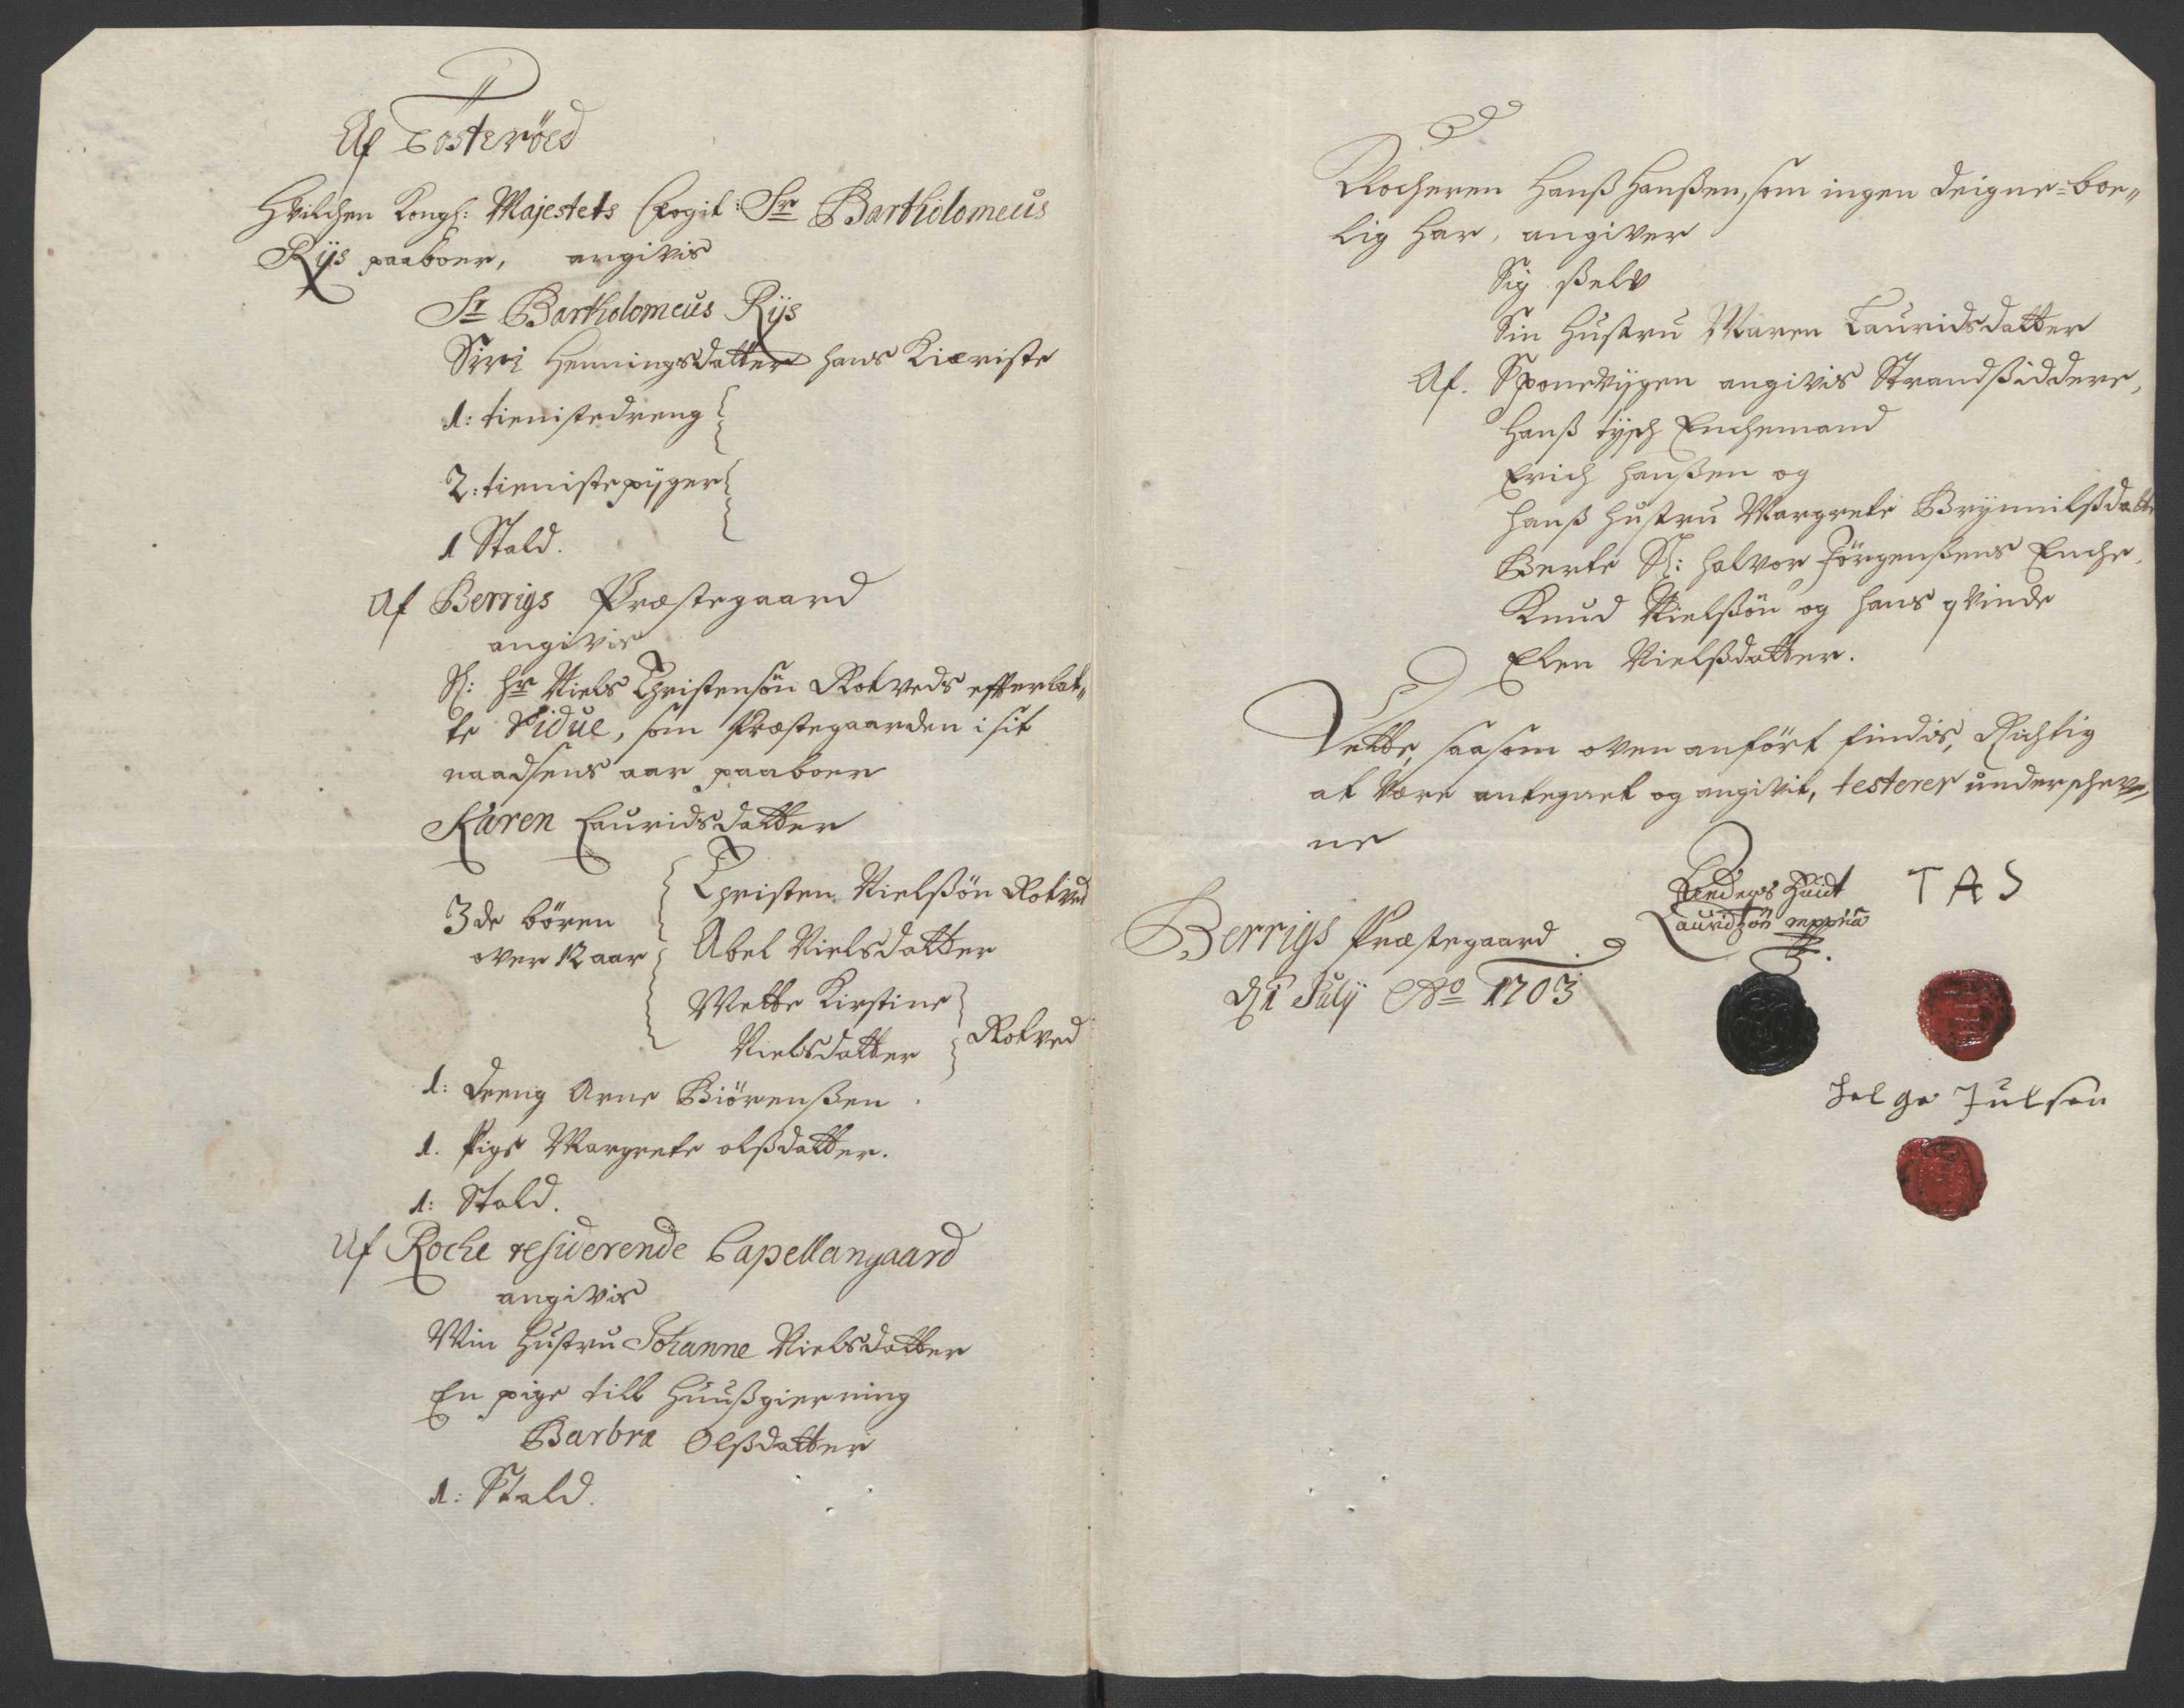 Af Tosteröed
Hvilchen Kongl: Majestets Fogit: Sr Bartholomeus
Rÿs paaboer, angivis
Sr Bartholomeus Rÿs
Siri Henningsdatter hans Kieriste
1: tienistedreng
2: tienistepÿger
1 Stald.
Af Berrigs Præstegaard
angivis
Sl: Hr Niels Christensön Rotveds efterlat„
te Vidue, som Præstegaarden i sit
naadsens aar paaboer
Karen Lauridsdatter
3de bören
over 12 aar
Christen Nielssön Rotved
Abel Nielsdatter
Mette Kirstine
Nielsdatter
Rotved
1: Dreng Arne Biörenßen.
1. Pige Margrete olßdatter.
1: Stald.
Af Roche residerende Capellangaard
angivis
Min Hustru Johanne Nielsdatter
En pige till Huußgierning
Barbra Olßdatter
1: Stald.
Klocheren Hanß Hanßen, som ingen deigne=boe„
lig har, angiver
Sig ßelv
Sin Hustru Maren Lauridsdatter
Af. Sponevÿgen angivis Strandßiddere,
Hanß tÿsch Enchemand
Erich Hanßen og
Hanß Hustru Margrete Brÿnnilßdatter
Berte Sl: Halvor Jörgenßens Enche,
Knud Nielßön og hans qvinde
Elen Nielßdatter.
Dette, saasom oven anfört findis, Richtig
at være antegnet og angivit, testerer underschrev„
ne
Berrigs Præstegaard
d. 1 Julÿ Ao 1703
Anders Hvidt
Lauridßön mppria
T A S
Helge Julsen